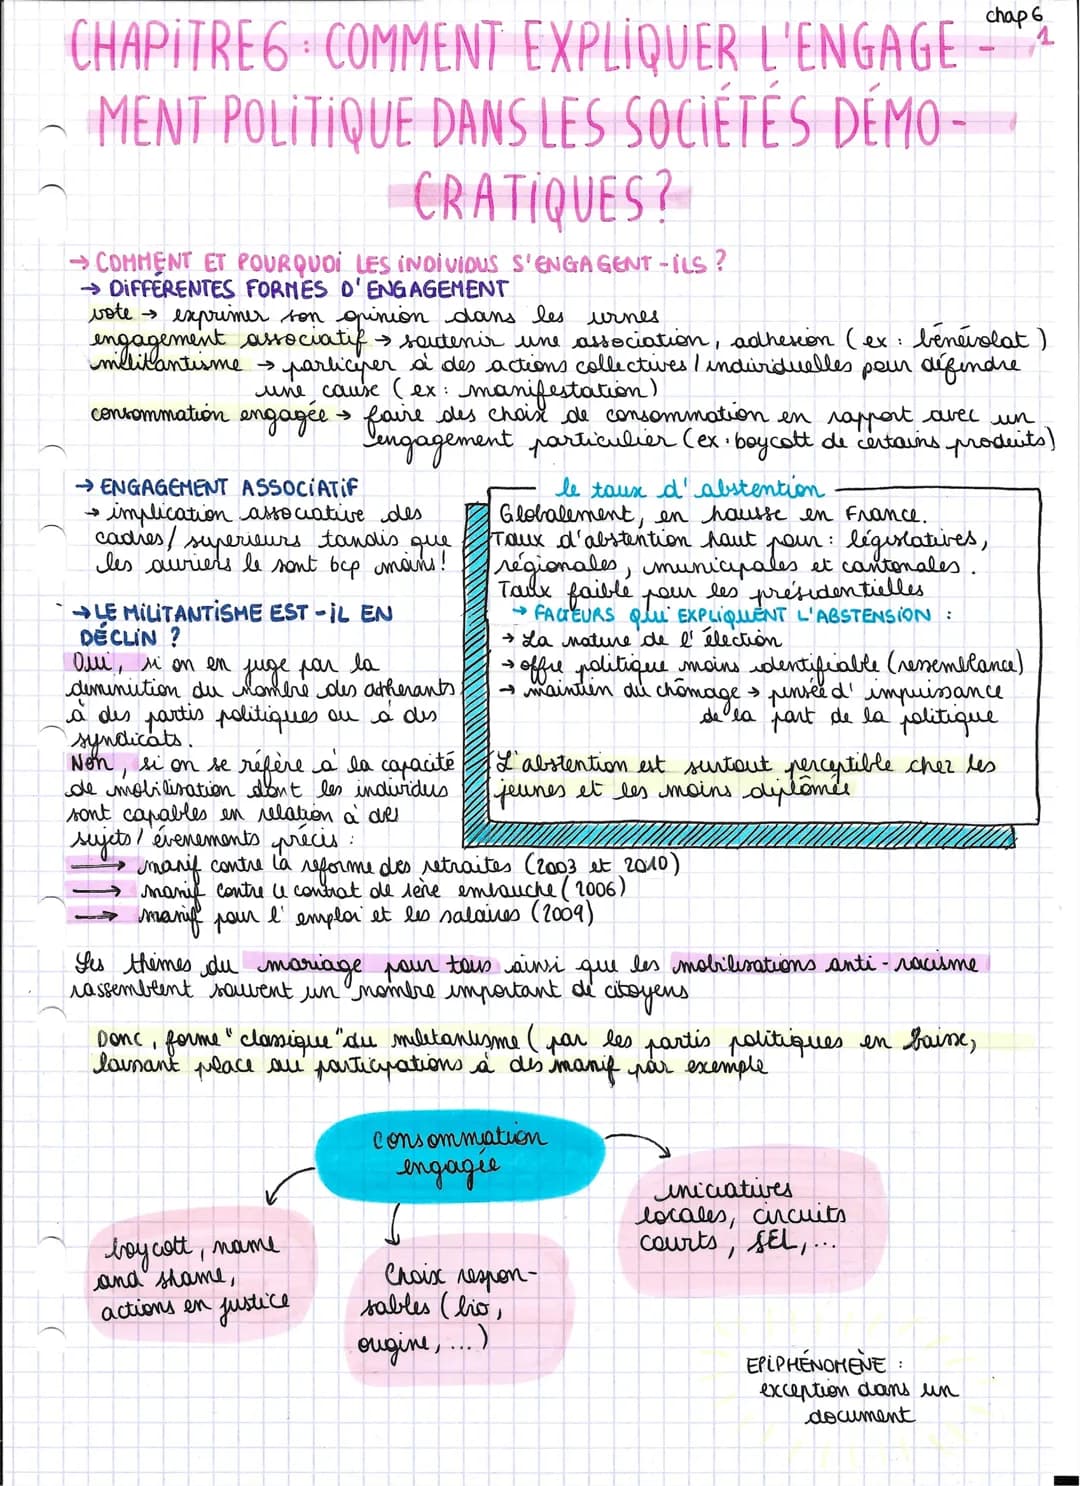 chap 6
1
CHAPITRE 6 : COMMENT EXPLIQUER L'ENGAGE-
MENT POLITIQUE DANS LES SOCIÉTÉS DÉMO-
CRATIQUES ?
→ COMMENT ET POURQUOI LES INDIVIDUS S'ENGAGENT-ILS ?
→ DIFFÉRENTES FORMES D'ENGAGEMENT
vote → exprimer son opinion dans les urnes
engagement associatif → soutenir une association, adhesion (ex : bénévolat)
militantisme → participer à des actions collectives / individuelles pour défendre
une cause (ex : manifestation)
consommation engagée → faire des choix de consommation en rapport avec un
engagement particulier (ex : boycott de certains produits)
→ ENGAGEMENT ASSOCIATIF
→ implication associative des
cadres / superieurs tandis que
les ouvriers le sont bcp moins !
→ LE MILITANTISME EST-IL EN
DÉCLIN ?
Oui, si on en juge par la
diminution du nombre des adherants
à des partis politiques ou à des
syndicats.
Non, si on se réfère à la capacité
de mobilisation dont les individus
sont capables en relation à des
sujets / évenements précis :
→ manif contre la reforme des retraites (2003 et 2010)
→ manif contre le contrat de 1ère embauche (2006)
→ manif pour l'emploi et les salaires (2009)
le taux d'abstention
Globalement, en hausse en France.
Taux d'abstention haut pour : législatives,
régionales, municipales et cantonales.
Taux faible pour les présidentielles
→ FACTEURS QUI EXPLIQUENT L'ABSTENSION :
→ La nature de l'élection
→ offre politique moins identifiable (ressemblance)
→ maintien du chômage → pensée d'impuissance
de la part de la politique
L'abstention est surtout perceptible chez les
jeunes et les moins diplômés
Les thèmes du mariage pour tous ainsi que les mobilisations anti-racisme
rassemblent souvent un nombre important de citoyens
Donc, forme "classique" du militantisme (par les partis politiques en baisse,
laissant place au participations à des manif par exemple
consommation
engagée
boycott, name
and shame,
actions en justice
Choix respon-
sables (bio,
origine, ...)
iniciatives
locales, circuits
courts, SEL, ...
EPIPHÉNOMÈNE :
exception dans un
document